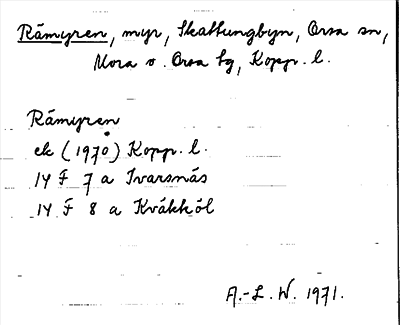 Råmyren, myr, Skattungbyn, Orsa sn,
Mora o. Orsa tg, Kopp. l.
Råmyren
ek (1970) Kopp. l.
14 F 7 a Ivarsnäs
14 F 8 a Kväkköl
A.-L. W. 1971.